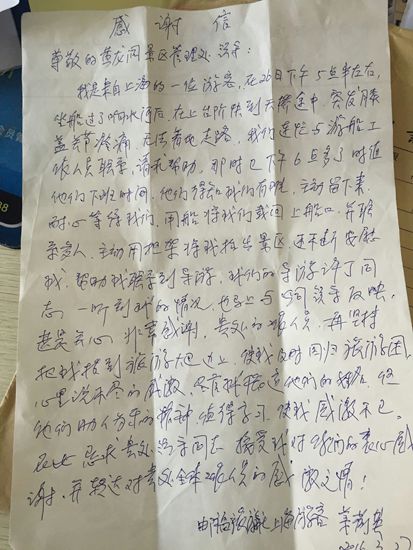 感谢信
尊敬的黄龙洞景区管理处领导：
我是来自上海的一位游客，在26日下午5点半左右，
坐船过了响水河后，在上台阶快到天梯途中，突发膝
盖关节冷痛，无法着地走路，我们连忙与游船工
作人员联系，请求帮助，那时已下午6点多了时值
他们下班时间，他们得知我们有难，主动留下来，
耐心等待我们，用船将我们载回上船口，并联
系多人，主动用担架将我抬出景区，还不断安慰
我，帮助我联系到导游，我们的导游许了同
志一听到我的情况，也马上与公司领导反映，
赶紧关心，非常感谢，贵处的服务员，再坚持
把我抬到旅游大巴上，使我及时回归旅游团，
心里说不尽的感激，尽管
他们助人为乐的精神，值得学习，使我感激不已。
在此恳求贵处领导同志，接受我对你们的衷心感
谢，并转达对贵处全体服务员的感激之情！
上海游客